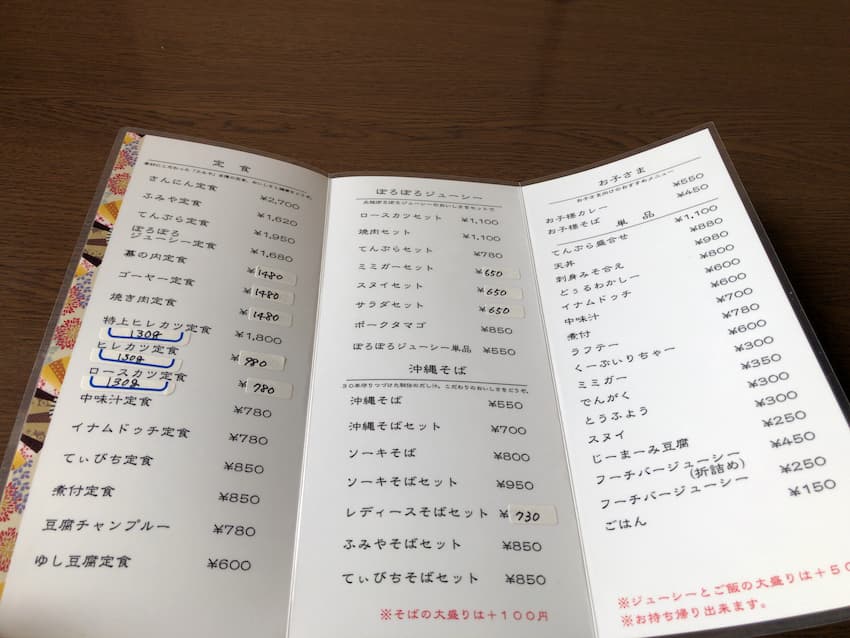 定 食
さんにん定食 ¥2,700
ふみや定食 ¥1,620
てんぷら定食 ¥1,950
ぽろぽろ
ジューシー定食 ¥1,680
幕の内定食 ¥1480
ゴーヤー定食 ¥1480
焼き肉定食 ¥1480
特上ヒレカツ定食 ¥1,800
130g
ヒレカツ定食 ¥980
130g
ロースカツ定食 ¥780
130g
中味汁定食 ¥780
イナムドゥチ定食 ¥780
てぃびち定食 ¥850
煮付定食 ¥850
豆腐チャンプルー ¥780
ゆし豆腐定食 ¥600
ぽろぽろジューシー
ロースカツセット ¥1,100
焼肉セット ¥1,100
てんぷらセット ¥780
ミミガーセット ¥650
スヌイセット ¥650
サラダセット ¥650
ポークタマゴ ¥850
ぽろぽろジューシー単品 ¥550
沖縄そば
30年守りつづけた秘伝のだし汁。こだわりのおいしさをどうぞ。
沖縄そば ¥550
沖縄そばセット ¥700
ソーキそば ¥800
ソーキそばセット ¥950
レディースそばセット ¥730
ふみやそばセット ¥850
てぃびちそばセット ¥850
※そばの大盛りは＋100円
お子さま
お子さま向けのおすすめメニュー
お子様カレー ¥550
お子様そば ¥450
単 品
てんぷら盛合せ ¥1,100
天丼 ¥880
刺身みそ合え ¥980
どぅるわかしー ¥800
イナムドゥチ ¥600
中味汁 ¥600
煮付 ¥700
ラフテー ¥780
くーぶいりちゃー ¥600
ミミガー ¥300
でんがく ¥350
とうふよう ¥300
スヌイ ¥300
じーまーみ豆腐 ¥250
フーチバージューシー ¥450
(折詰め)
フーチバージューシー ¥250
ごはん ¥150
※ジューシーとご飯の大盛りは＋50
※お持ち帰り出来ます。